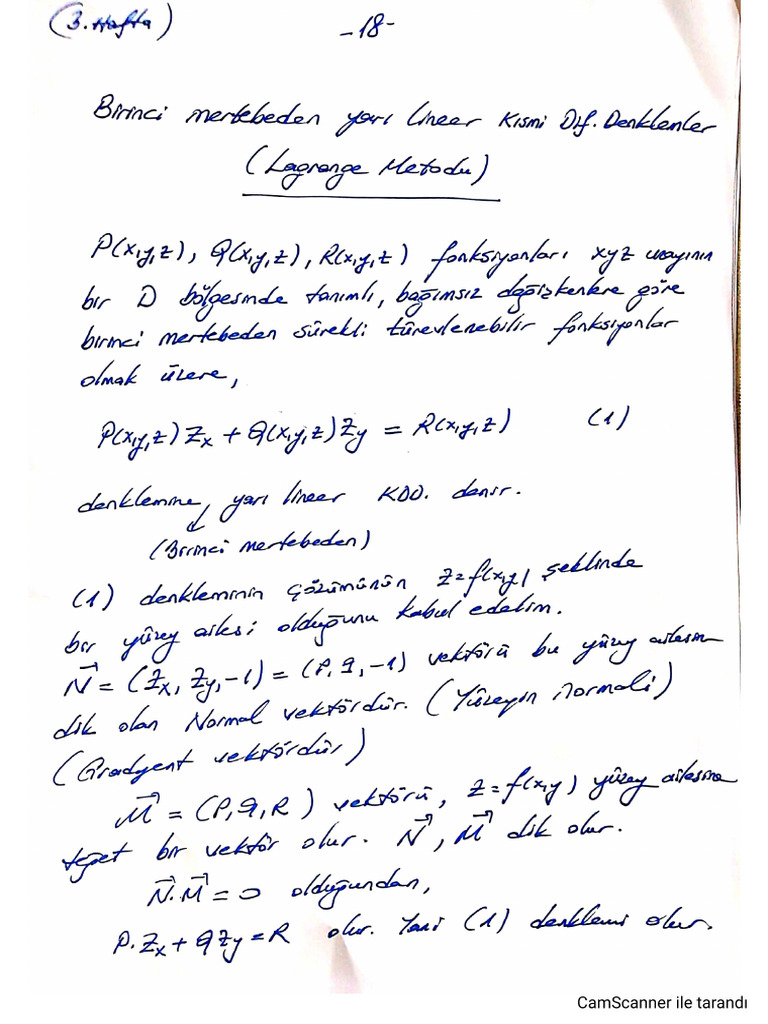 (3. Hafta)
-18-
Birinci mertebeden yarı lineer Kısmi Dif. Denklemler
(Lagrange Metodu)
P(x,y,z), Q(x,y,z), R(x,y,z) fonksiyonları xyz uzayının
bir D bölgesinde tanımlı, bağımsız değişkenlere göre
birinci mertebeden sürekli türevlenebilir fonksiyonlar
olmak üzere,
P(x,y,z) Zx + Q(x,y,z) Zy = R(x,y,z) (1)
denklemine, yarı lineer KDD. denir.
↓
(Birinci mertebeden)
(1) denkleminin çözümünün z=f(x,y) şeklinde
bir yüzey ailesi olduğunu kabul edelim.
N⃗ = (Zx, Zy, -1) = (P, q, -1) vektörü bu yüzey ailesine
dik olan Normal vektördür. (Yüzeyin normali)
(Gradyent vektördür)
M⃗ = (P, Q, R) vektörü, z=f(x,y) yüzey ailesine
teğet bir vektör olur. N⃗, M⃗ dik olur.
N⃗.M⃗ = 0 olduğundan,
P.Zx + QZy = R olur. Yani (1) denklemi olur.
CamScanner ile tarandı